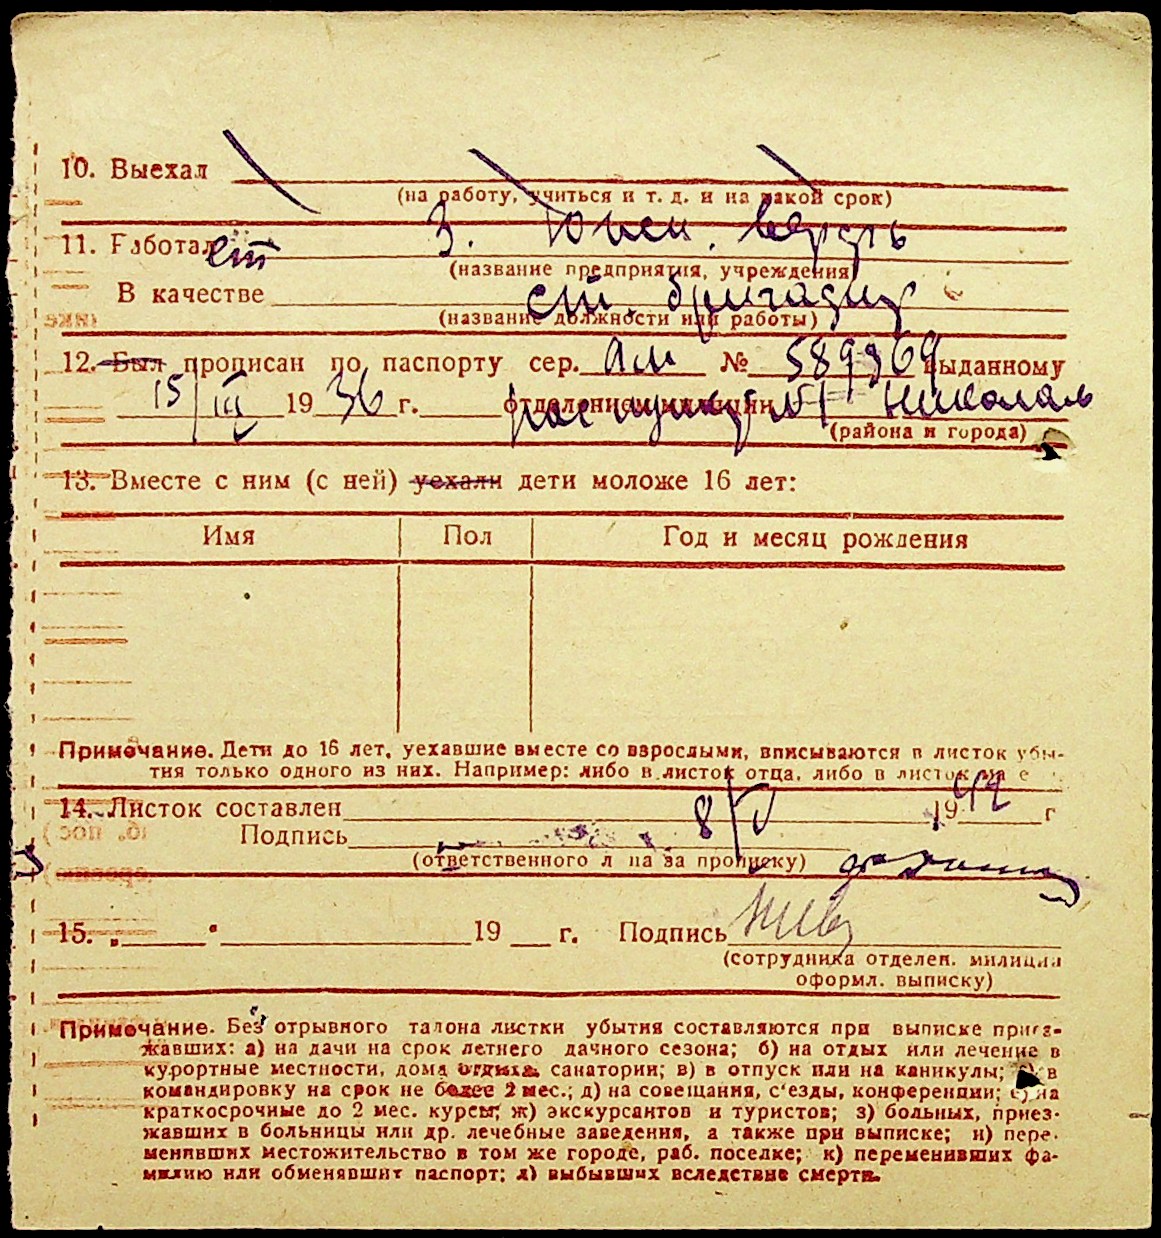 10. Выехал
(на работу, учиться и т. д. и на какой срок)
11. Работал ст З.
(название предприятия, учреждения)
В качестве ст. бригадир
(название должности или работы)
12. Был прописан по паспорту сер. АМ № 589969 выданному
15/III 1936 г. отделение милиции
(района и города)
13. Вместе с ним (с ней) уехали дети моложе 16 лет:
Имя Пол Год и месяц рождения
Примечание. Дети до 16 лет, уехавшие вместе со взрослыми, вписываются в листок убы-
тия только одного из них. Например: либо в листок отца, либо в листок
14. Листок составлен 8/V 1942 г
Подпись
(ответственного л ца за прописку)
15. „ " 19 г. Подпись
(сотрудника отделен. милиции
оформл. выписку)
Примечание. Без отрывного талона листки убытия составляются при выписке приез-
жавших: а) на дачи на срок летнего дачного сезона; б) на отдых или лечение в
курортные местности, дома отдыха, санатории; в) в отпуск или на каникулы; г) в
командировку на срок не более 2 мес.; д) на совещания, с'езды, конференции; е) на
краткосрочные до 2 мес. курсы; ж) экскурсантов и туристов; з) больных, приез-
жавших в больницы или др. лечебные заведения, а также при выписке; и) пере-
менивших местожительство в том же городе, раб. поселке; к) переменивших фа-
милию или обменявших паспорт; л) выбывших вследствие смерти.